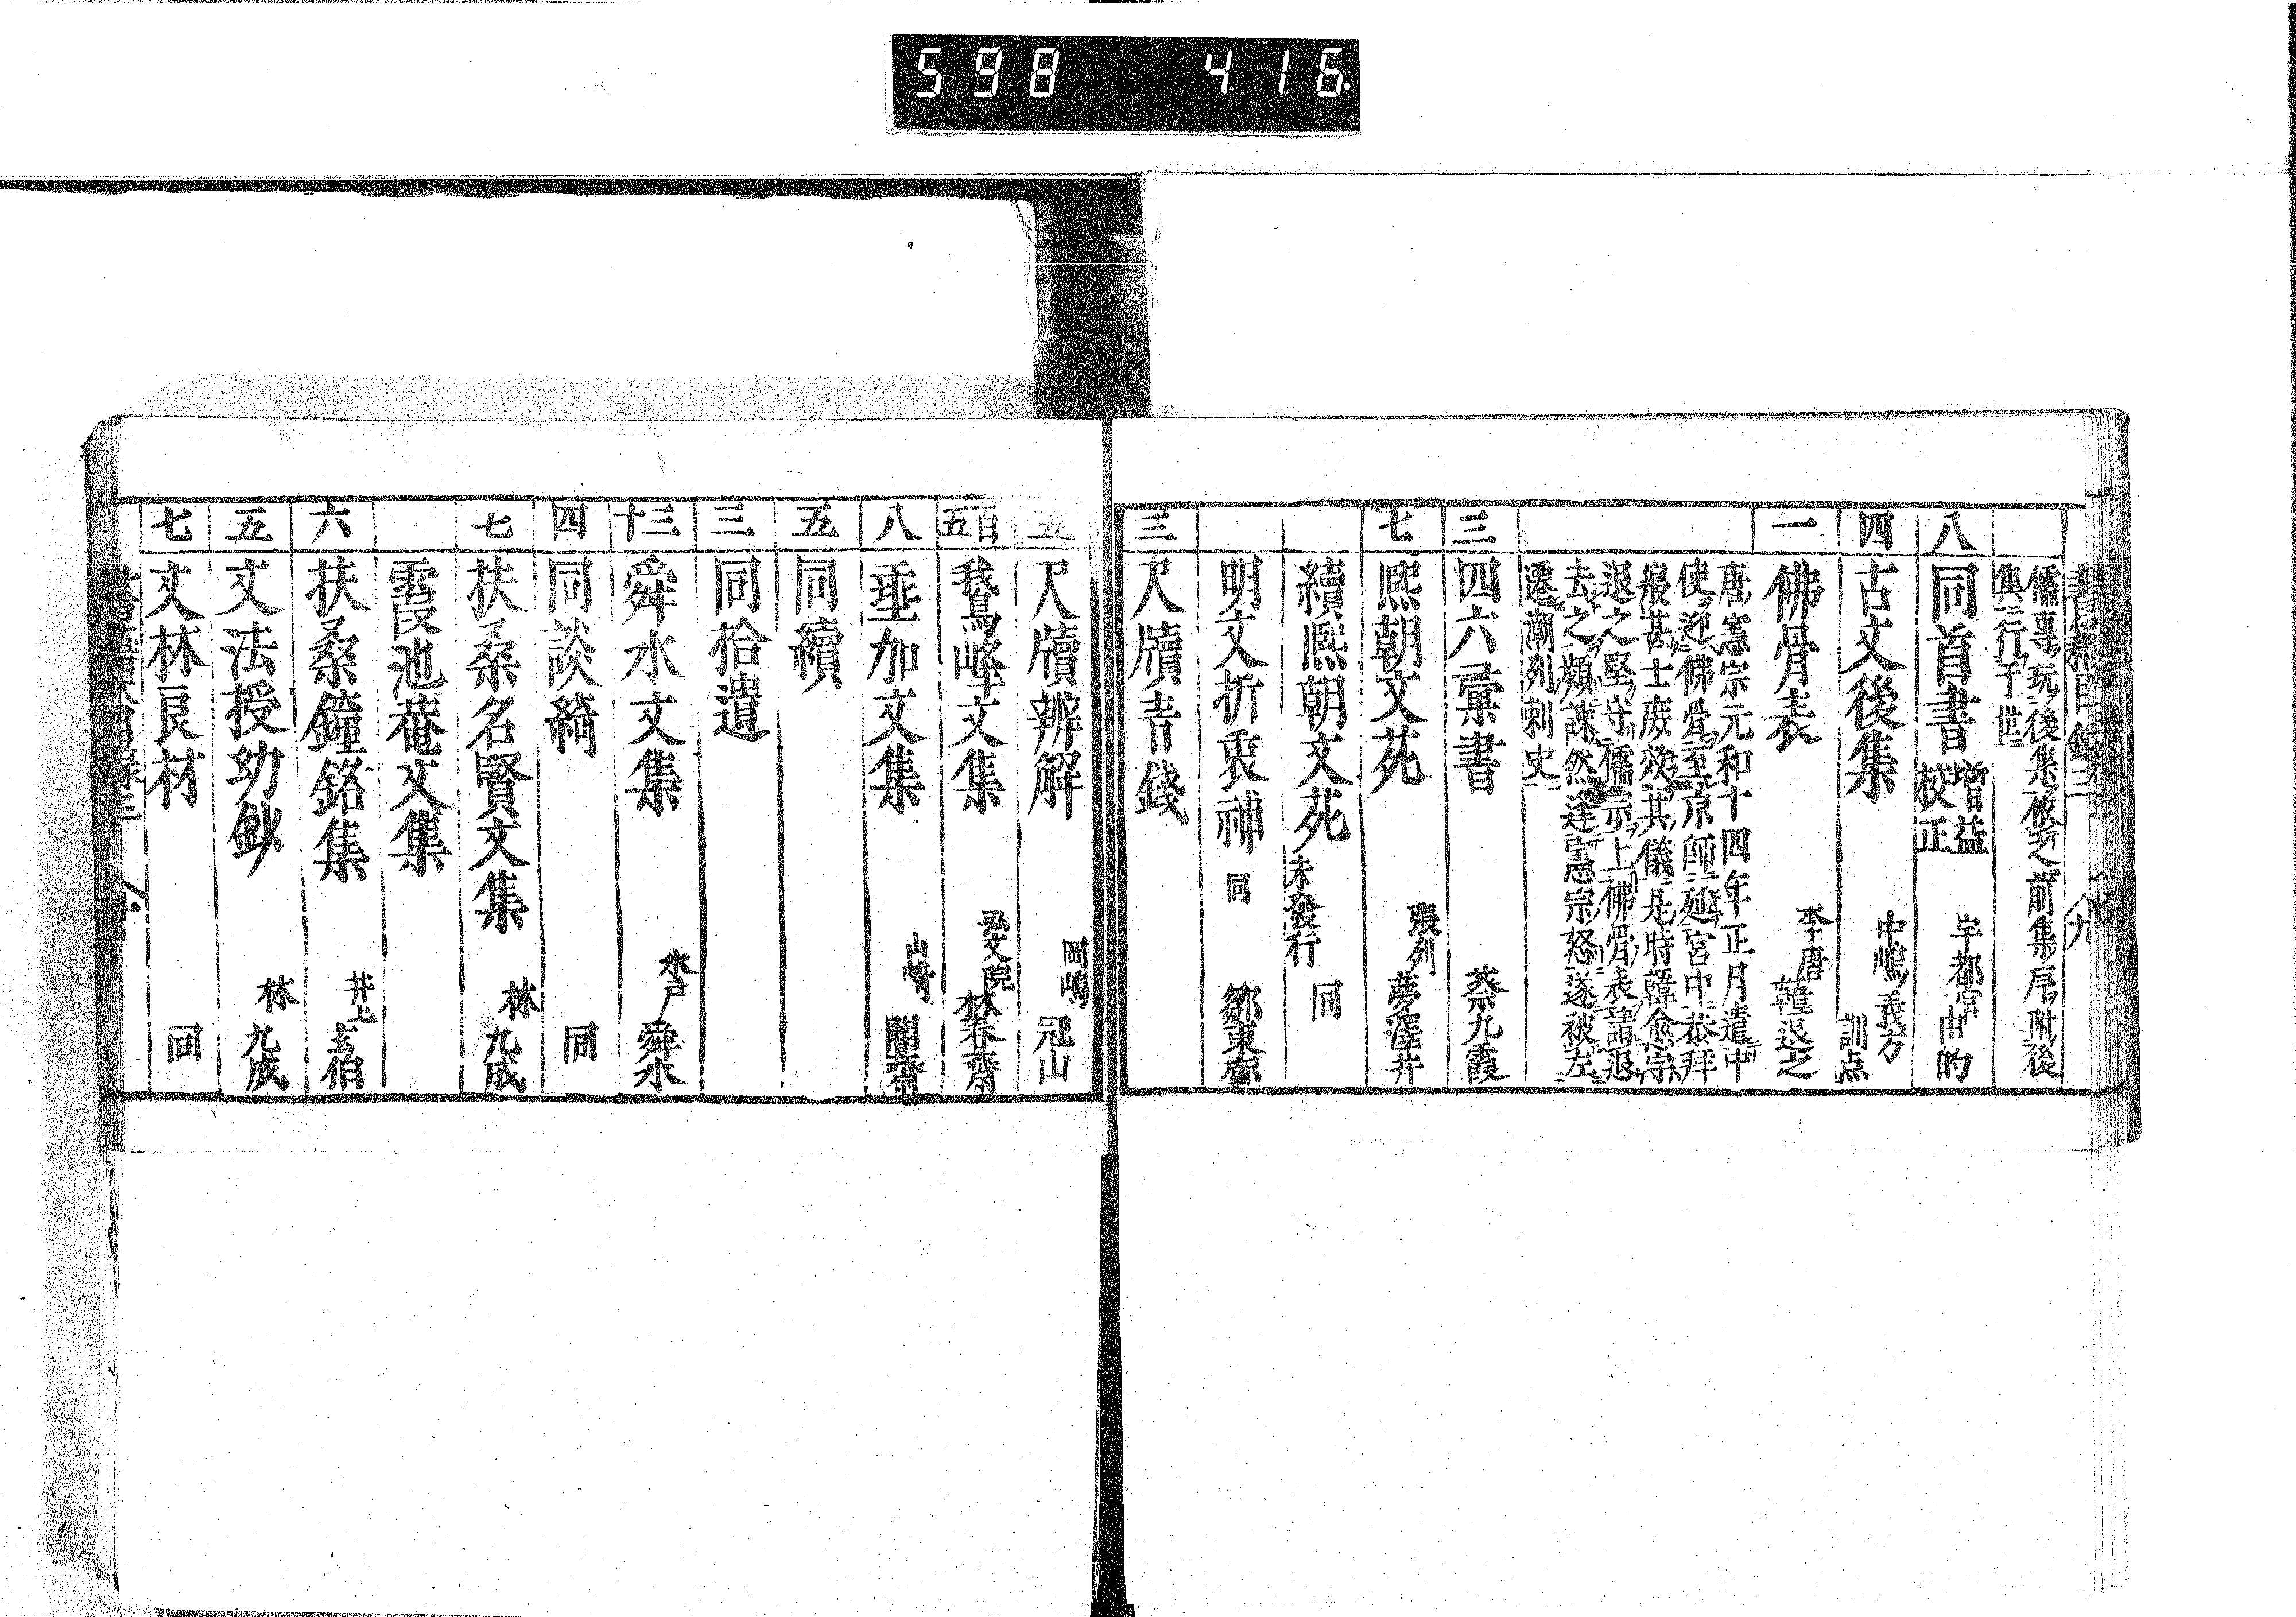 598 416
儒專玩後集依之前集序附後
集行于世
八 同首書 増益校正 宇都宮由的
四 古文後集 中嶋義方訓点
一 佛骨表 李唐韓退之
唐憲宗元和十四年正月遣中
使迎佛骨至京師延宮中恭拜
寂甚士庶效其儀是時韓愈字
退之堅守儒宗上佛骨表請退
去之頗諫然逢憲宗怒遂被左
遷潮州刺史
三 四六彙書 蔡九霞
七 熙朝文苑 張列夢澤井
續熙朝文苑 未發行 同
明文折衷神 同 鄒東廓
三 尺牘青錢
五 尺牘辨解 岡嶋冠山
百五 我鳥峰文集 弘文院林春齋
八 垂加文集 山崎闇齋
五 同續
三 同拾遺
十三 舜水文集 水戸舜水
四 同談綺 同
七 扶桑名賢文集 林九成
霞池菴文集
六 扶桑鐘銘集 井上玄伯
五 文法授幼鈔 林九成
七 文林良材 同